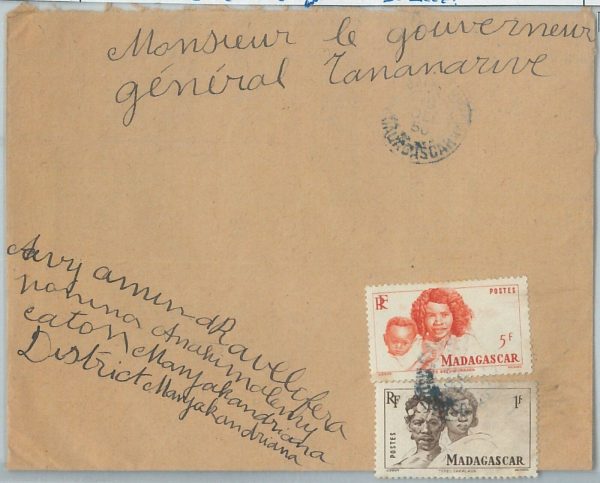 Monsieur le gouverneur
général Tananarive
MADAGASCAR
Avy amin-dRavelofera
nonina Anahimalemy
caton Manjakandriana
District Manjakandriana
RF
POSTES
5F
MADAGASCAR
RF
1F
POSTES
MADAGASCAR